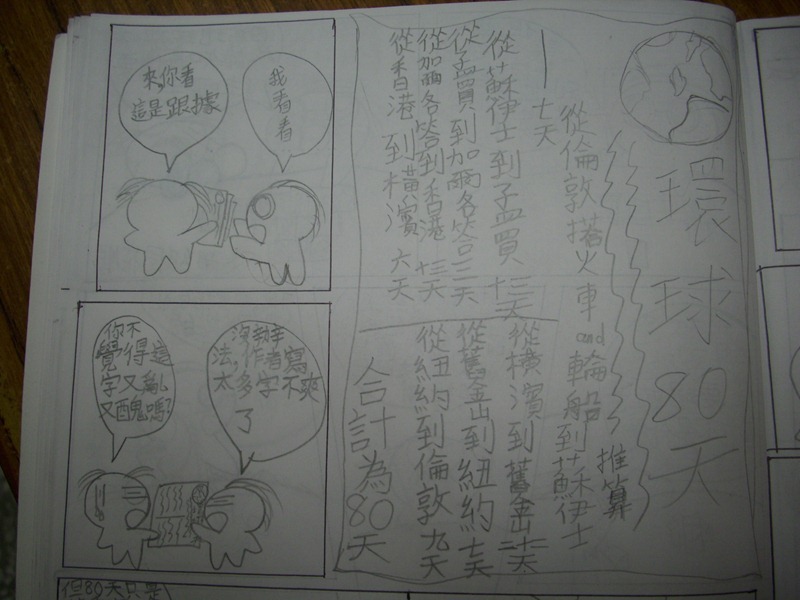 環球80天
推算
從倫敦搭火車and輪船到蘇伊士
—七天
從蘇伊士到孟買 十三天
從孟買到加爾各答三天
從加爾各答到香港 十三天
從香港到橫濱 六天
從橫濱到舊金山二十二天
從舊金山到紐約七天
從紐約到倫敦九天
合計為80天
我看看
來,你看
這是跟據
沒辦
法,作者寫
太多字不爽
了
你不
覺得這
字又亂
又醜嗎?
但80天只是